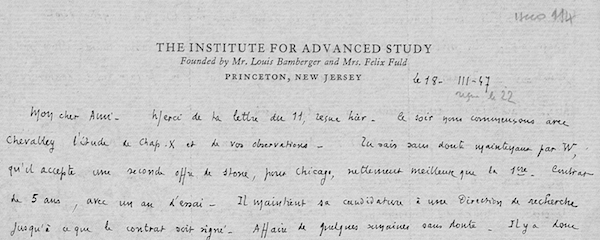 THE INSTITUTE FOR ADVANCED STUDY
Founded by Mr. Louis Bamberger and Mrs. Felix Fuld
PRINCETON, NEW JERSEY
le 18- III-47
reçue le 22
Mon cher Ami - Merci de ta lettre du 11, reçue hier. Ce soir nous commençons avec
Chevalley l'étude de Chap. X et de vos observations - Tu sais sans doute maintenant par W,
qu'il accepte une seconde offre de Stone, pour Chicago, nettement meilleure que la 1ère. Contrat
de 5 ans, avec un an d'essai - Il maintient sa candidature à une Direction de recherche
jusqu'à ce que le contrat soit signé - Affaire de quelques semaines sans doute - Il y a donc